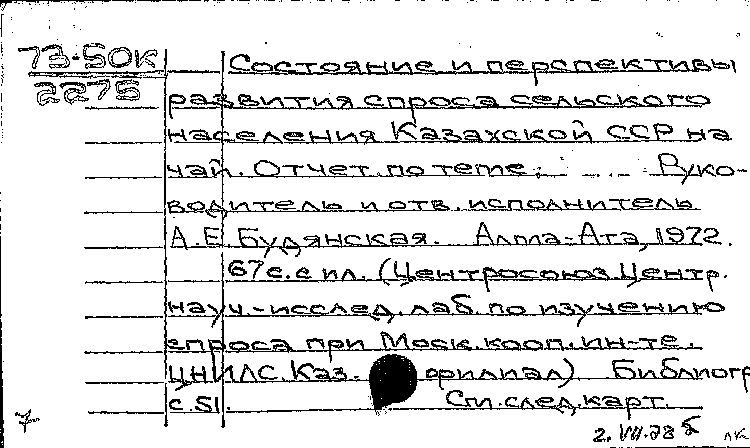 73-50К
2275
Состояние и перспективы
развития спроса сельского
населения Казахской ССР на
чай. Отчет по теме: ... Руко-
водитель и отв. исполнитель
А.Е. Будянская. Алма-Ата, 1972.
67 с. с ил. (Центросоюз Центр.
науч.-исслед. лаб. по изучению
спроса при Моск. кооп. ин-те.
ЦНИЛС. Каз. филиал) Библиогр
с. 51. См. след. карт.
7 2.VII.73 б